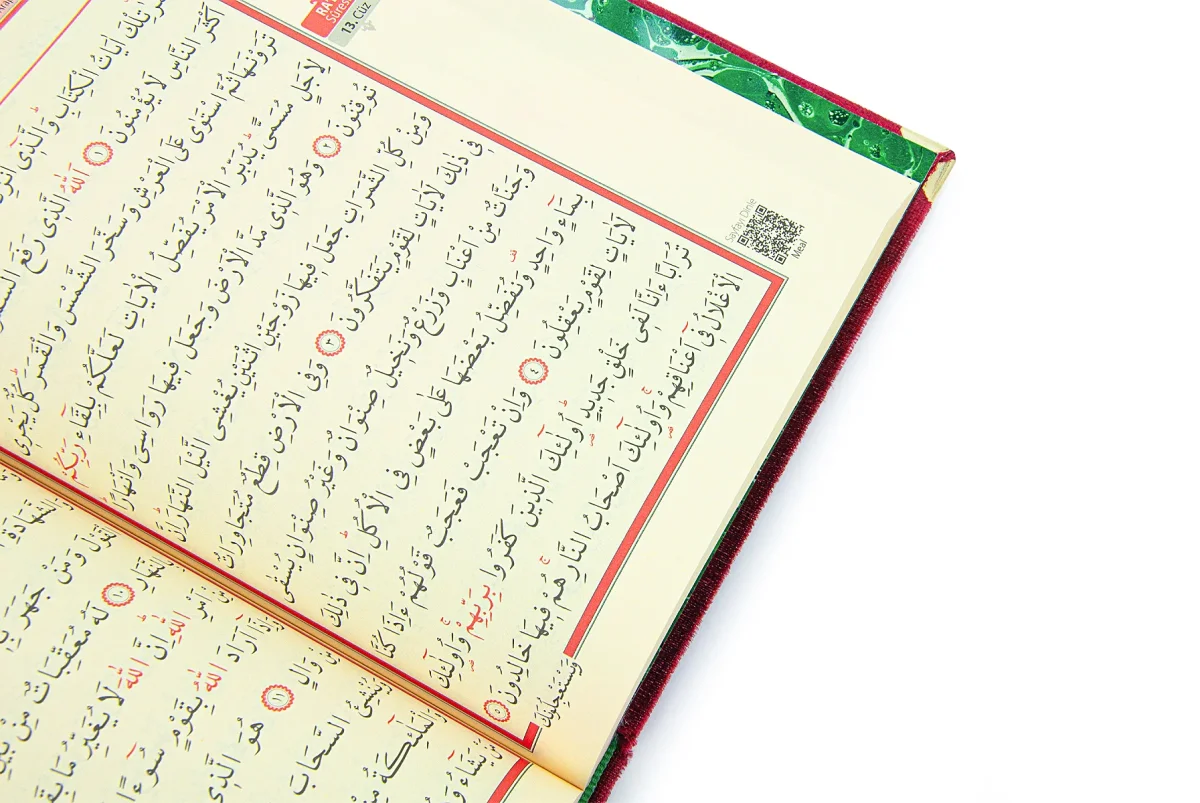 13. Cüz
تِلْكَ اٰيَاتُ الْكِتَابِ وَالَّذٖٓى
اَكْثَرَ النَّاسِ لَا يُؤْمِنُونَ ١ اَللّٰهُ الَّذٖى رَفَعَ
تَرَوْنَهَا ثُمَّ اسْتَوٰى عَلَى الْعَرْشِ وَسَخَّرَ الشَّمْسَ وَالْقَمَرَ كُلٌّ يَجْرٖى
لِاَجَلٍ مُسَمًّى يُدَبِّرُ الْاَمْرَ يُفَصِّلُ الْاٰيَاتِ لَعَلَّكُمْ بِلِقَٓاءِ رَبِّكُمْ
تُوقِنُونَ ٢ وَهُوَ الَّذٖى مَدَّ الْاَرْضَ وَجَعَلَ فٖيهَا رَوَاسِىَ وَاَنْهَارًا
وَمِنْ كُلِّ الثَّمَرَاتِ جَعَلَ فٖيهَا زَوْجَيْنِ اثْنَيْنِ يُغْشِى الَّيْلَ النَّهَارَ اِنَّ
فٖى ذٰلِكَ لَاٰيَاتٍ لِقَوْمٍ يَتَفَكَّرُونَ ٣ وَفِى الْاَرْضِ قِطَعٌ مُتَجَاوِرَاتٌ
وَجَنَّاتٌ مِنْ اَعْنَابٍ وَزَرْعٌ وَنَخٖيلٌ صِنْوَانٌ وَغَيْرُ صِنْوَانٍ يُسْقٰى
بِمَٓاءٍ وَاحِدٍ وَنُفَضِّلُ بَعْضَهَا عَلٰى بَعْضٍ فِى الْاُكُلِ اِنَّ فٖى ذٰلِكَ
لَاٰيَاتٍ لِقَوْمٍ يَعْقِلُونَ ٤ وَاِنْ تَعْجَبْ فَعَجَبٌ قَوْلُهُمْ ءَاِذَا كُنَّا
تُرَابًا ءَاِنَّا لَفٖى خَلْقٍ جَدٖيدٍ اُولٰٓئِكَ الَّذٖينَ كَفَرُوا بِرَبِّهِمْ وَاُولٰٓئِكَ
الْاَغْلَالُ فٖٓى اَعْنَاقِهِمْ وَاُولٰٓئِكَ اَصْحَابُ النَّارِ هُمْ فٖيهَا خَالِدُونَ ٥
وَيَسْتَعْجِلُونَكَ
Sayfayı Dinle
Meal
وَمَنْ جَهَرَ
١٠ لَهُ مُعَقِّبَاتٌ مِنْ
اللّٰهِ اِنَّ اللّٰهَ لَا يُغَيِّرُ مَا
اَرَادَ اللّٰهُ بِقَوْمٍ سُٓوءًا
وَالٍ ١١ هُوَ الَّذٖى
السَّحَابَ